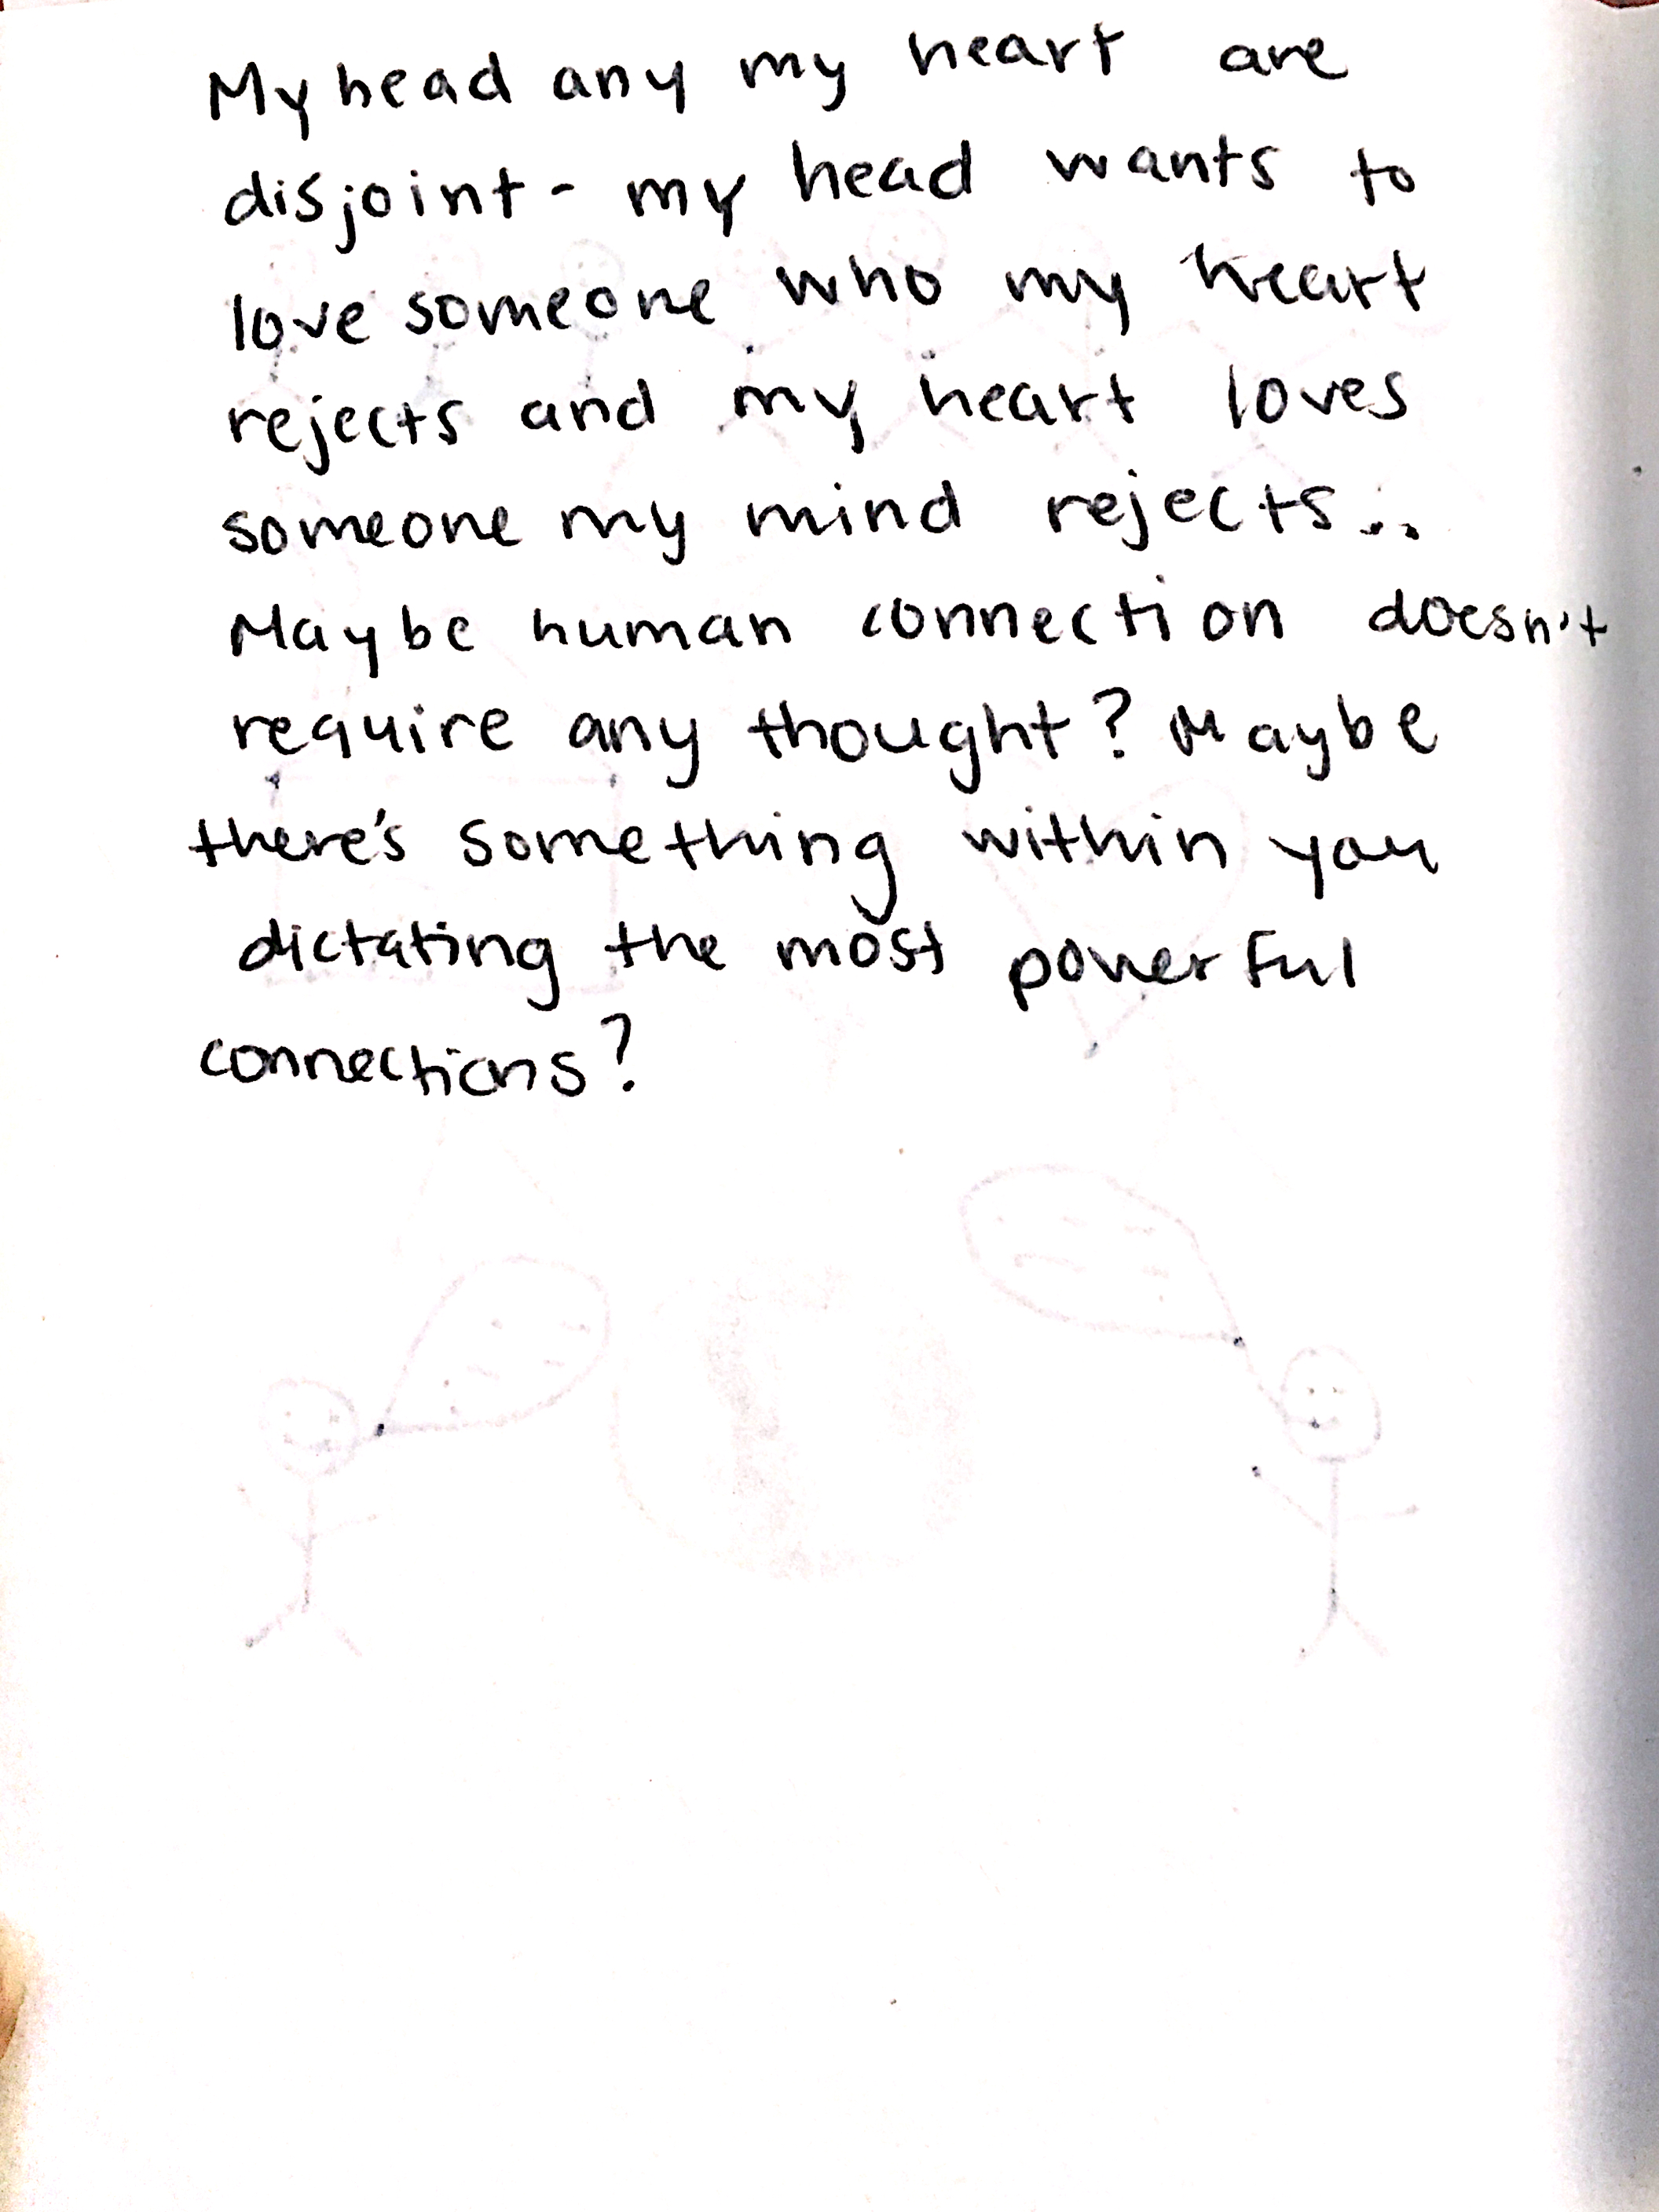 My head any my heart are
disjoint - my head wants to
love someone who my heart
rejects and my heart loves
someone my mind rejects...
Maybe human connection doesn't
require any thought? Maybe
there's something within you
dictating the most powerful
connections?